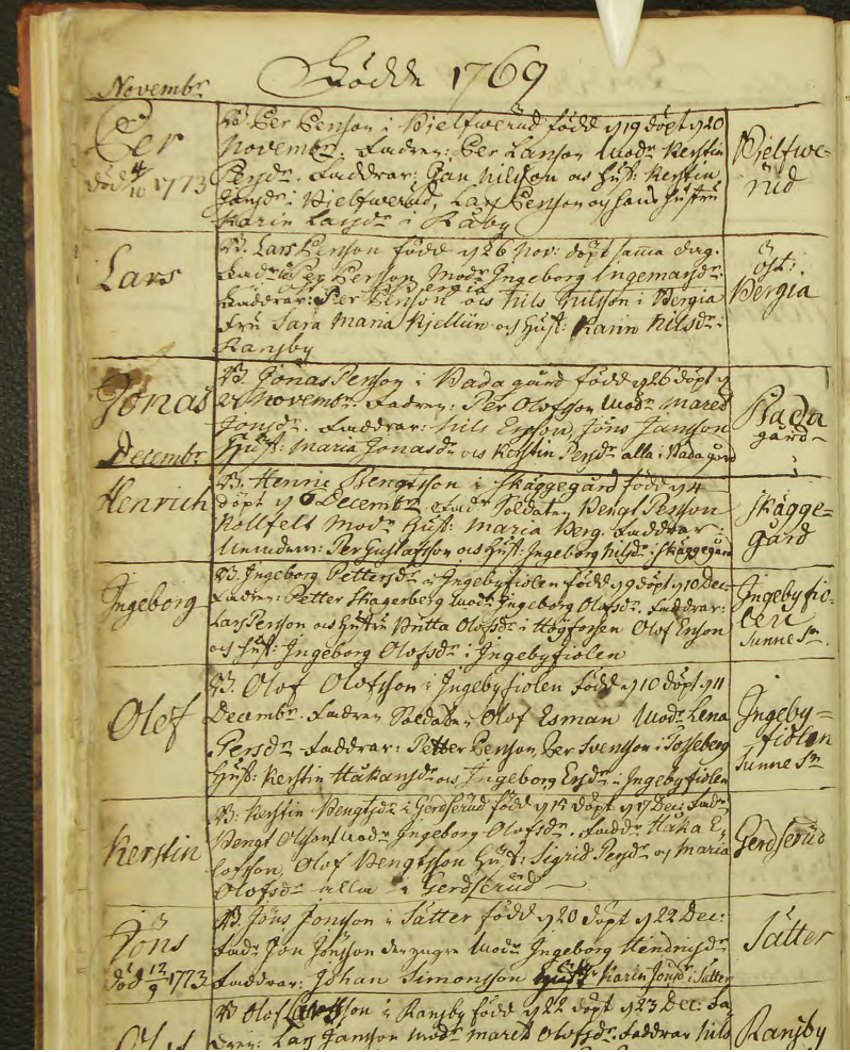 Novembr Födde 1769
Per
död 4/10 1773
B. Per Person i Bjelfwerud född d 19 döpt d 20
Novembr. Fadren: Per Larson Modr Kerstin
Persdr. Faddrar: Jan Nilsson och Hust: Kerstin
Jonsdr i Bjelfwerud, Lars Person och hans Hustru
Karin Larsdr i Råby
Bjelfwe-
rud
Lars
B. Lars Person född d 26 Nov: döpt samma dag.
Fadr Per Person Modr Ingeborg Ingemarsdr
Faddrar: Per Person och Nils Nilsson i Bergia
Fru Sara Maria Kjellin och Hust: Karin Nilsdr i
Ransby
Öst:
Bergia
Jonas
B. Jonas Person i Bada gård född d 26 döpt d
27 Novembr. Fadren: Per Olofson Modr Maret
Jonsdr. Faddrar: Nils Erson, Jöns Janson
Hust: Maria Jonasdr och Kerstin Persdr alla i Bada gård
Bada
gård
Decembr
Henrich
B. Henric Bengtsson i Skäggegård född d 4
döpt d 6 Decembr Fadr Soldaten Bengt Persson
Modr Hust: Maria Berg. Faddrar:
Per Gustafsson och Hust: Ingeborg Nilsdr i Skäggegård
Skägge=
gård
Ingeborg
B. Ingeborg Pettersdr i Ingebyfiolen född d 9 döpt d 10 Dec:
Fadren: Petter Skagerberg Modr Ingeborg Olofsdr. Faddrar:
Lars Person och Hustru Britta Olofsdr i Högforsen Olof Erson
och Hust: Ingeborg Olofsdr i Ingebyfiolen
Ingebyfio-
len
Sunne Sn.
Olof
B. Olof Olofsson i Ingebyfiolen född d 10 döpt d 11
Decembr. Fadren Soldaten Olof Esman Modr Lena
Persdr Faddrar: Petter Person, Per Svensson i Tosseberg
Hust: Kerstin Håkansdr och Ingeborg Ersdr i Ingebyfiolen
Ingeby=
fiolen
Sunne Sn
Kerstin
B. Kerstin Bengtsdr i Gerdserud född d 15 döpt d 17 Dec: Fadr
Bengt Olsson Modr Ingeborg Olofsdr. Faddr Håka E-
lofsson, Olof Bengtsson Hust: Sigrid Persdr och Maria
Olofsdr alla i Gerdserud
Gerdserud
Jöns
död 12/9 1773
B. Jöns Jonsson i Sätter född d 20 döpt d 22 Dec:
Fadr Jon Jönsson den yngre Modr Ingeborg Hendricsdr
Faddrar: Johan Simonsson Karin Jonsdr i Sätter
Sätter
Olof
B Olof Larsson i Ransby född d 22 döpt d 23 Dec: Fa-
dren: Lars Jansson Modr Marit Olofsdr. Faddrar Nils
Ransby